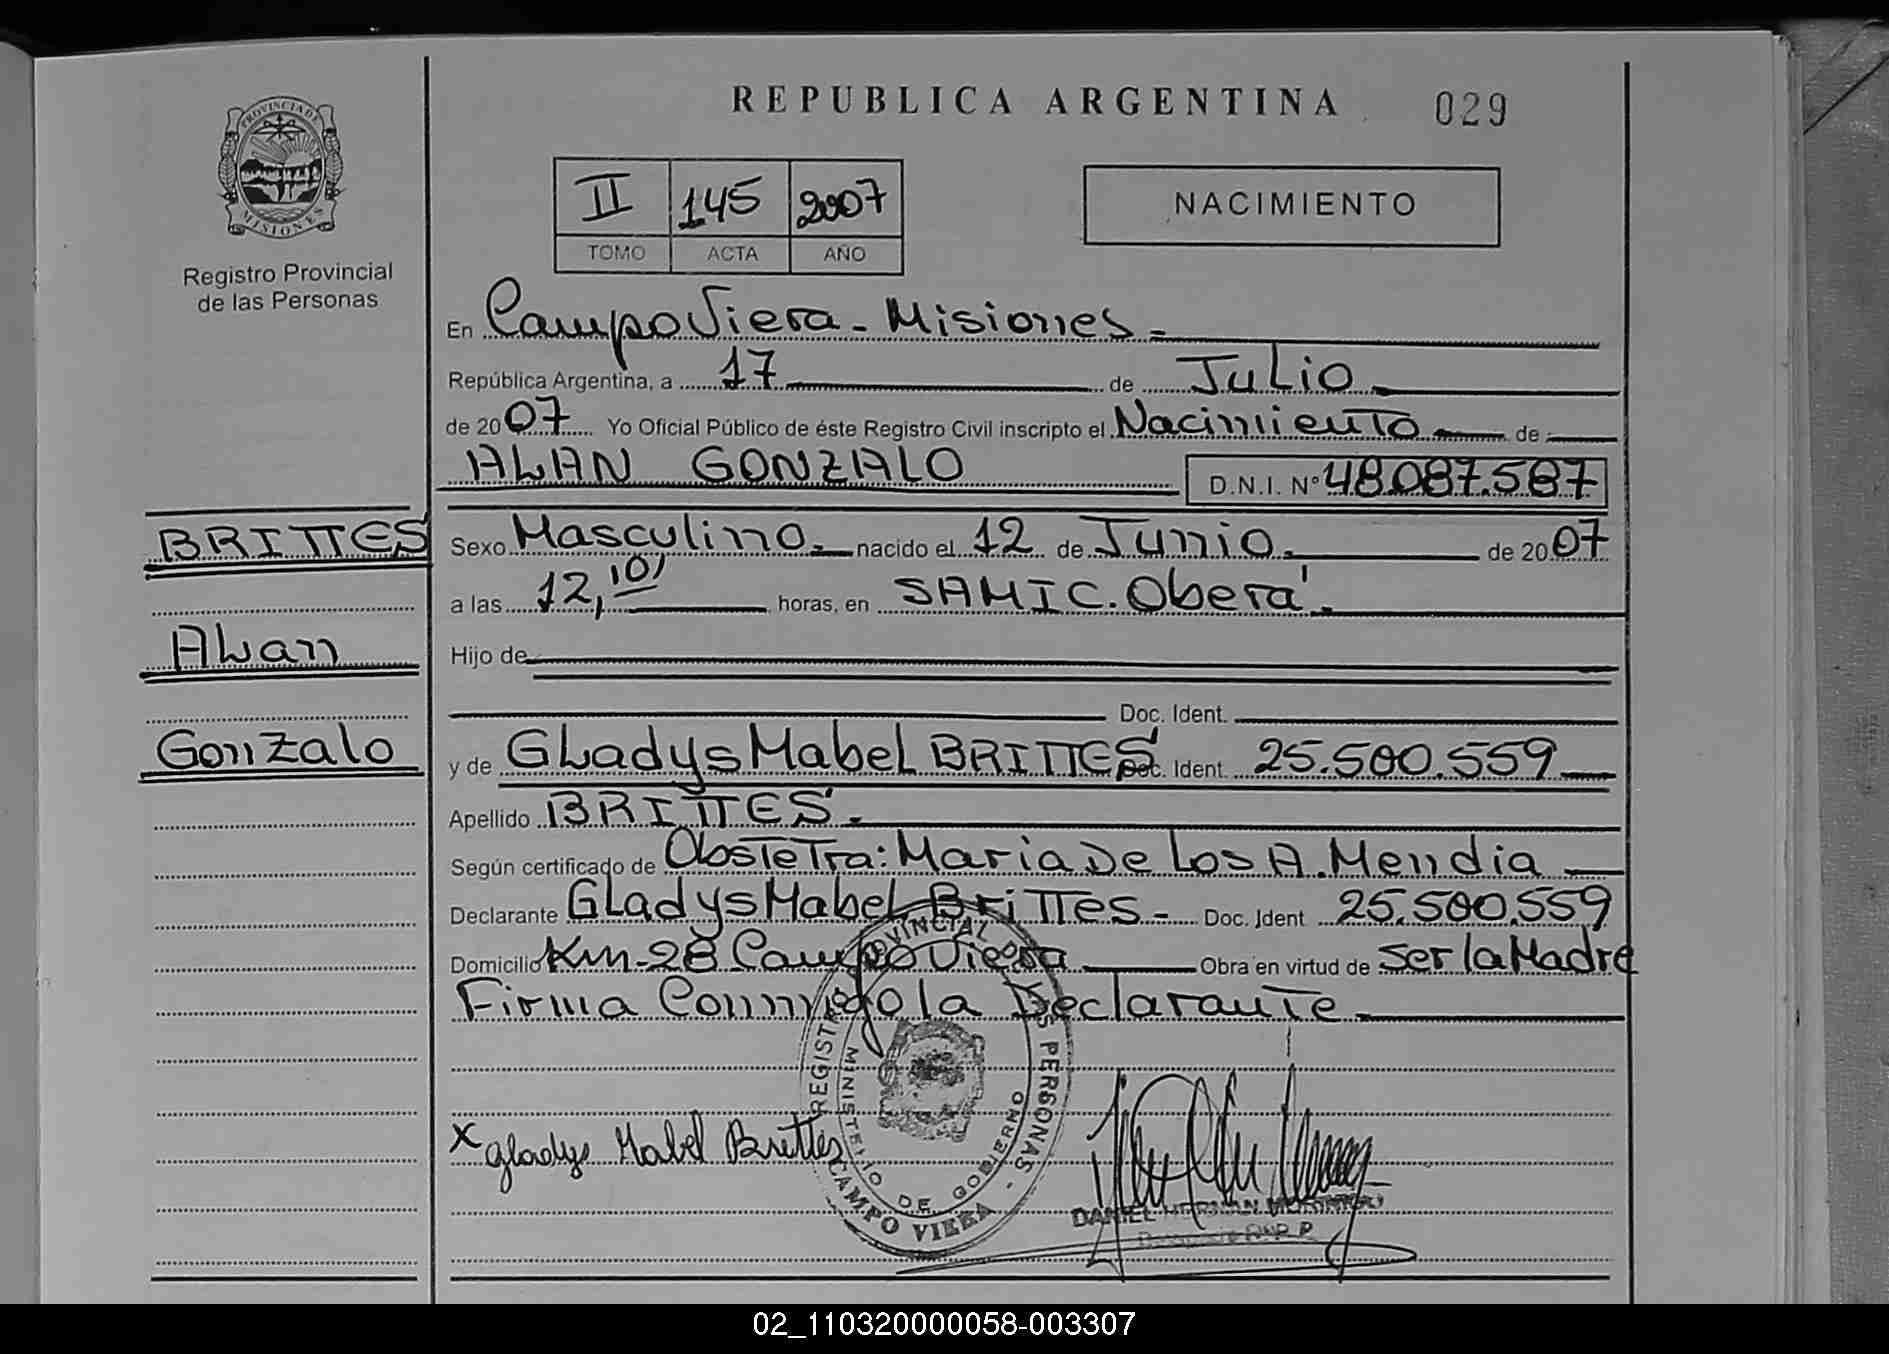 REPUBLICA ARGENTINA
029
PROVINCIA DE MISIONES
Registro Provincial
de las Personas
II 145 2007
TOMO ACTA AÑO
NACIMIENTO
En Campo Viera - Misiones -
República Argentina, a 17 de Julio
de 2007 Yo Oficial Público de éste Registro Civil inscripto el Nacimiento de
ALAN GONZALO D.N.I. Nº 48.087.587
BRITTES
Alan
Gonzalo
Sexo Masculino. nacido el 12 de Junio. de 2007
a las 12,10' horas, en SAMIC. Oberá.
Hijo de
Doc. Ident.
y de GLadys MabeL BRITTES Doc. Ident. 25.500.559
Apellido BRITTES.
Según certificado de ObsTeTra: Maria De Los A. Mendia
Declarante GLadys MabeL BriTTes - Doc. Ident 25.500.559
Domicilio Km-28 Campo Viera Obra en virtud de ser la Madre
Firma Conmigo la DeclaranTe.
x Gladys Mabel Brittes
REGISTRO PROVINCIAL DE LAS PERSONAS - CAMPO VIERA
MINISTERIO DE GOBIERNO
DANIEL HERNAN
02_110320000058-003307